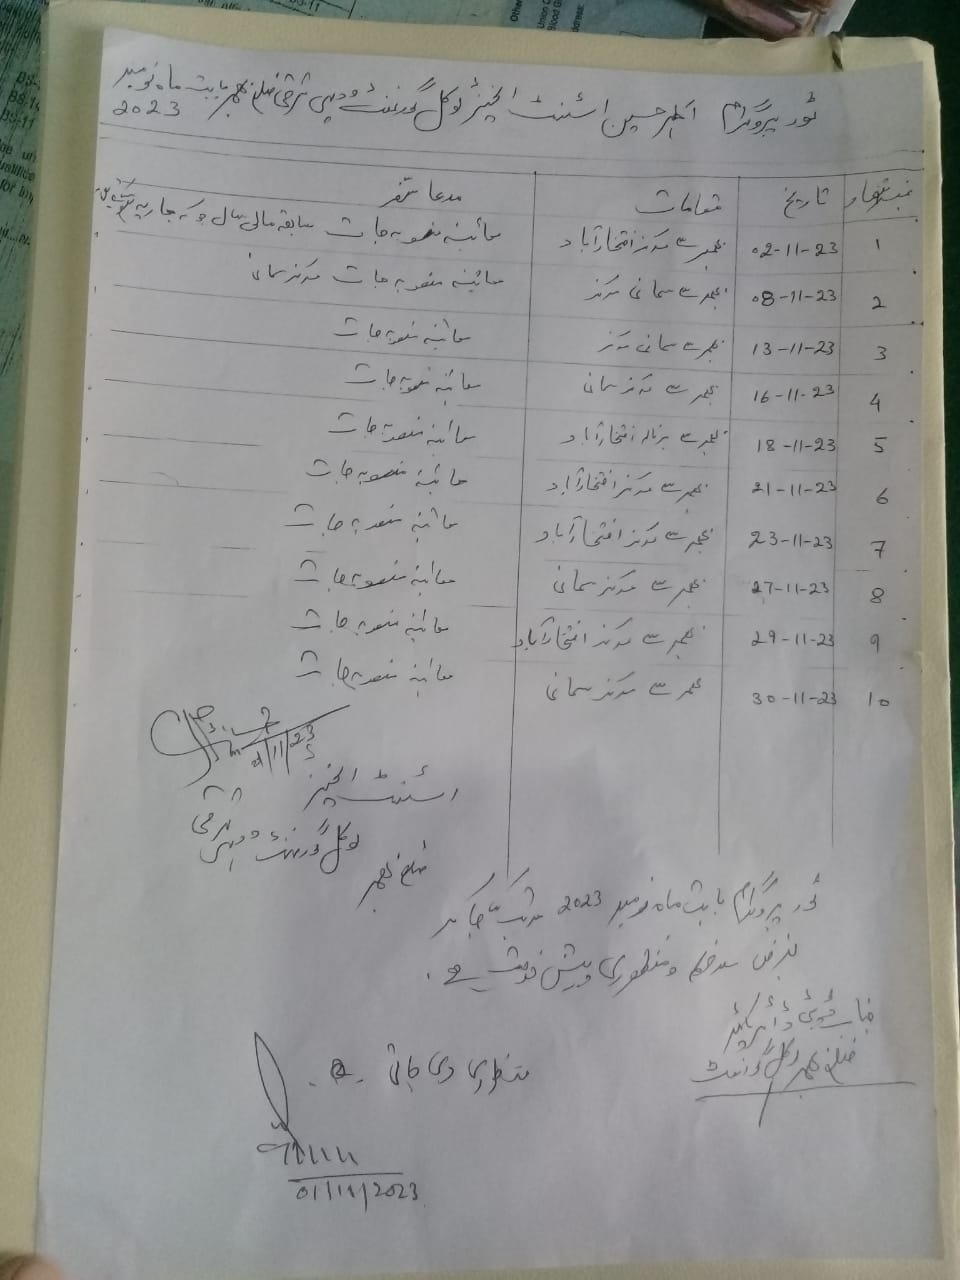 ٹور پروگرام اظہر حسین اسسٹنٹ انجینئر لوکل گورنمنٹ و دیہی ترقی ضلع بھمبر بابت ماہ نومبر
2023
نمبر شمار تاریخ مقامات مدعا سفر
1 02-11-23 بھمبر سے مرکز افتخارآباد معائنہ منصوبہ جات سابقہ مالی سال و جاریہ
2 08-11-23 بھمبر سے سماہنی مرکز معائنہ منصوبہ جات مرکز سماہنی
3 13-11-23 بھمبر سے سماہنی مرکز معائنہ منصوبہ جات
4 16-11-23 بھمبر سے مرکز سماہنی معائنہ منصوبہ جات
5 18-11-23 بھمبر سے برنالہ افتخارآباد معائنہ منصوبہ جات
6 21-11-23 بھمبر سے مرکز افتخارآباد معائنہ منصوبہ جات
7 23-11-23 بھمبر سے مرکز افتخارآباد معائنہ منصوبہ جات
8 27-11-23 بھمبر سے مرکز سماہنی معائنہ منصوبہ جات
9 29-11-23 بھمبر سے مرکز افتخارآباد معائنہ منصوبہ جات
10 30-11-23 بھمبر سے مرکز سماہنی معائنہ منصوبہ جات
اسسٹنٹ انجینئر
لوکل گورنمنٹ و دیہی ترقی
ضلع بھمبر
ٹور پروگرام بابت ماہ نومبر 2023 مرتب کیا جا کر
بغرض ملاحظہ و منظوری پیش خدمت ہے۔
جناب ڈپٹی ڈائریکٹر
لوکل گورنمنٹ ضلع بھمبر
منظوری دی جاتی ہے۔
01/11/2023